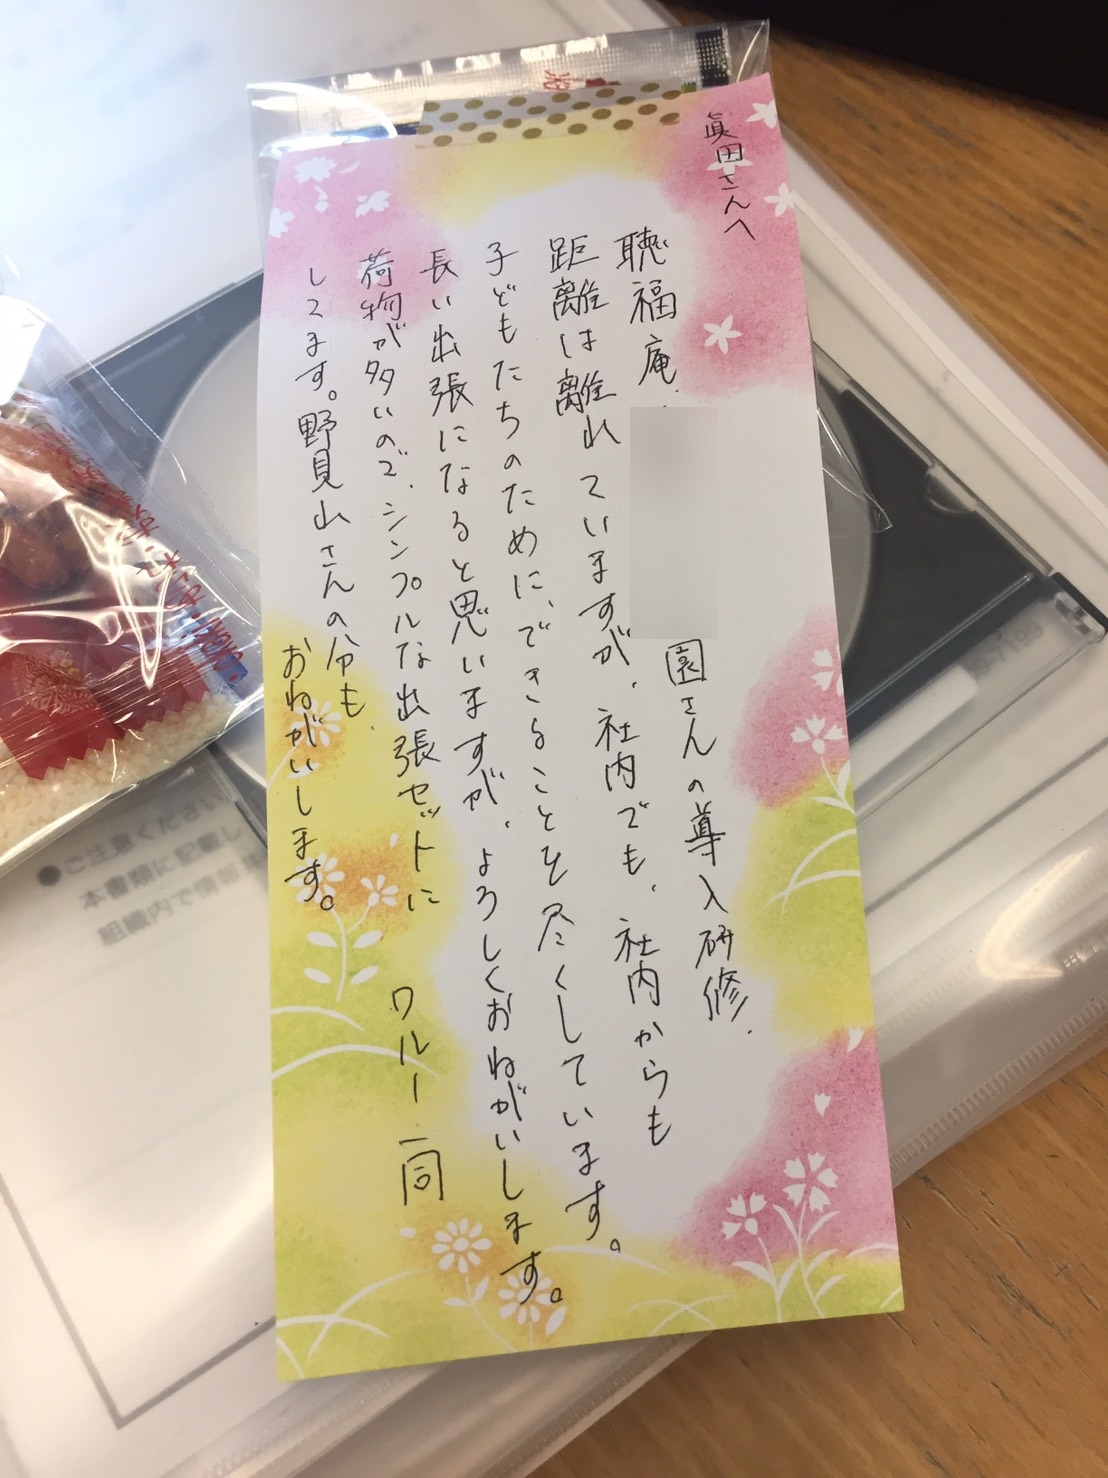 眞田さんへ
聴福庵、
園さんの導入研修、
距離は離れていますが、社内でも、社内からも
子どもたちのために、できることを尽くしています。
長い出張になると思いますが、よろしくおねがいします。
荷物が多いので、シンプルな出張セットに
してます。野見山さんの分も、
おねがいします。
クルー一同
●ご注意くださ
本書類に記載し
組織内で情報